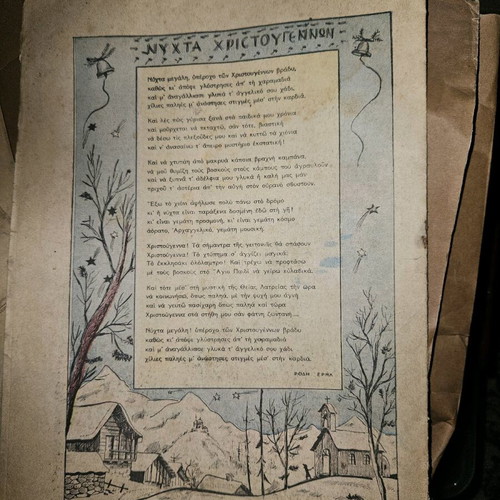 ΝΥΧΤΑ ΧΡΙΣΤΟΥΓΕΝΝΩΝ
Νύχτα μεγάλη, ὑπέροχο τῶν Χριστουγέννων βράδυ,
καθὼς κι' ἀπόψε γλύστρησες ἀπ' τὴ χαραμάδα
καὶ μ' ἀναγάλλιασε γλυκὰ τ' ἀγγελικό σου χάδι,
χίλιες παληὲς μ' ἀνάστησες στιγμὲς μέσ' στὴν καρδιά.
Καὶ λὲς πὼς γύρισα ξανὰ στὰ παιδικά μου χρόνια
καὶ μαζεύεται πεταχτῶ, σὰν τότε, βιαστικὴ
νὰ δέσω τὶς πλεξοῦδες μου καὶ νὰ κυττῶ τὰ χιόνια
καὶ ν' ἀνασαίνω τ' ὄνειρο μυστήριο ἐκστατική!
Καὶ νὰ χτυπάῃ ἀπὸ μακρυὰ κάποια βραχνὴ καμπάνα,
νὰ μοῦ θυμίζῃ τοὺς βοσκοὺς στοὺς κάμπους τοῦ
καὶ νὰ ξυπνᾷ τ' ἀδέλφια μου γλυκὰ ἡ καλή μας μάνα
τ' ἀστέρια ἀπ' τὴν αὐγὴ στὸν οὐρανὸ σβυστοῦν.
Ἔξω τὸ χιόνι ἀψήλωσε πολὺ πάνω στὸ δρόμο
κι' ἡ νύχτα εἶναι παράξενα δοσμένη ἐδῶ στὴ γῆ!
κι' εἶναι γεμάτη προσμονή, κι' εἶναι γεμάτη κόσμο
ἀόρατο, Ἀρχαγγελικό, γεμάτη μουσική.
Χριστούγεννα! Τὰ σήμαντρα τῆς γειτονιᾶς θὰ σπάσουν
Χριστούγεννα! Τὸ χτύπημα σ' ἀγγίζει μαγικά:
Τὸ ἐκκλησάκι ὁλόλαμπρο! Καὶ τρέχω νὰ προφτάσω
μὲ τοὺς βοσκοὺς στὸ Ἅγιο Παιδὶ νὰ γείρω εὐλαβικά.
Καὶ τότε μέσ' στὴ μυστικὴ τῆς Θείας Λατρείας τὴν ὥρα
νὰ κοινωνήσω, ὅπως παληά, μὲ τὴν ψυχή μου ἁγνὴ
καὶ νὰ γευτῶ πασίχαρη ὅπως παληὰ καὶ τώρα
Χριστούγεννα στὰ στήθη μου σὰν φάτνη ζωντανή...
Νύχτα μεγάλη! ὑπέροχο τῶν Χριστουγέννων βράδυ
καθὼς κι' ἀπόψε γλύστρησες ἀπ' τὴ χαραμάδα
καὶ μ' ἀναγάλλιασε γλυκὰ τ' ἀγγελικό σου χάδι
χίλιες παληὲς μ' ἀνάστησες στιγμὲς μέσ' στὴν καρδιά.